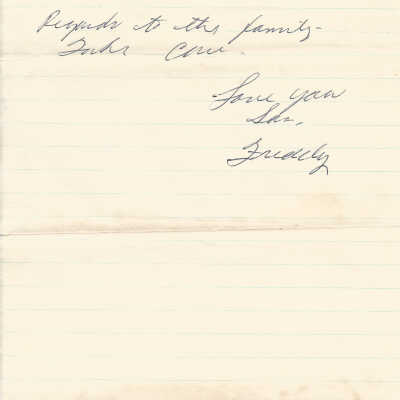 Regards to the family -
Take Care.
Love you
Son,
Freddy